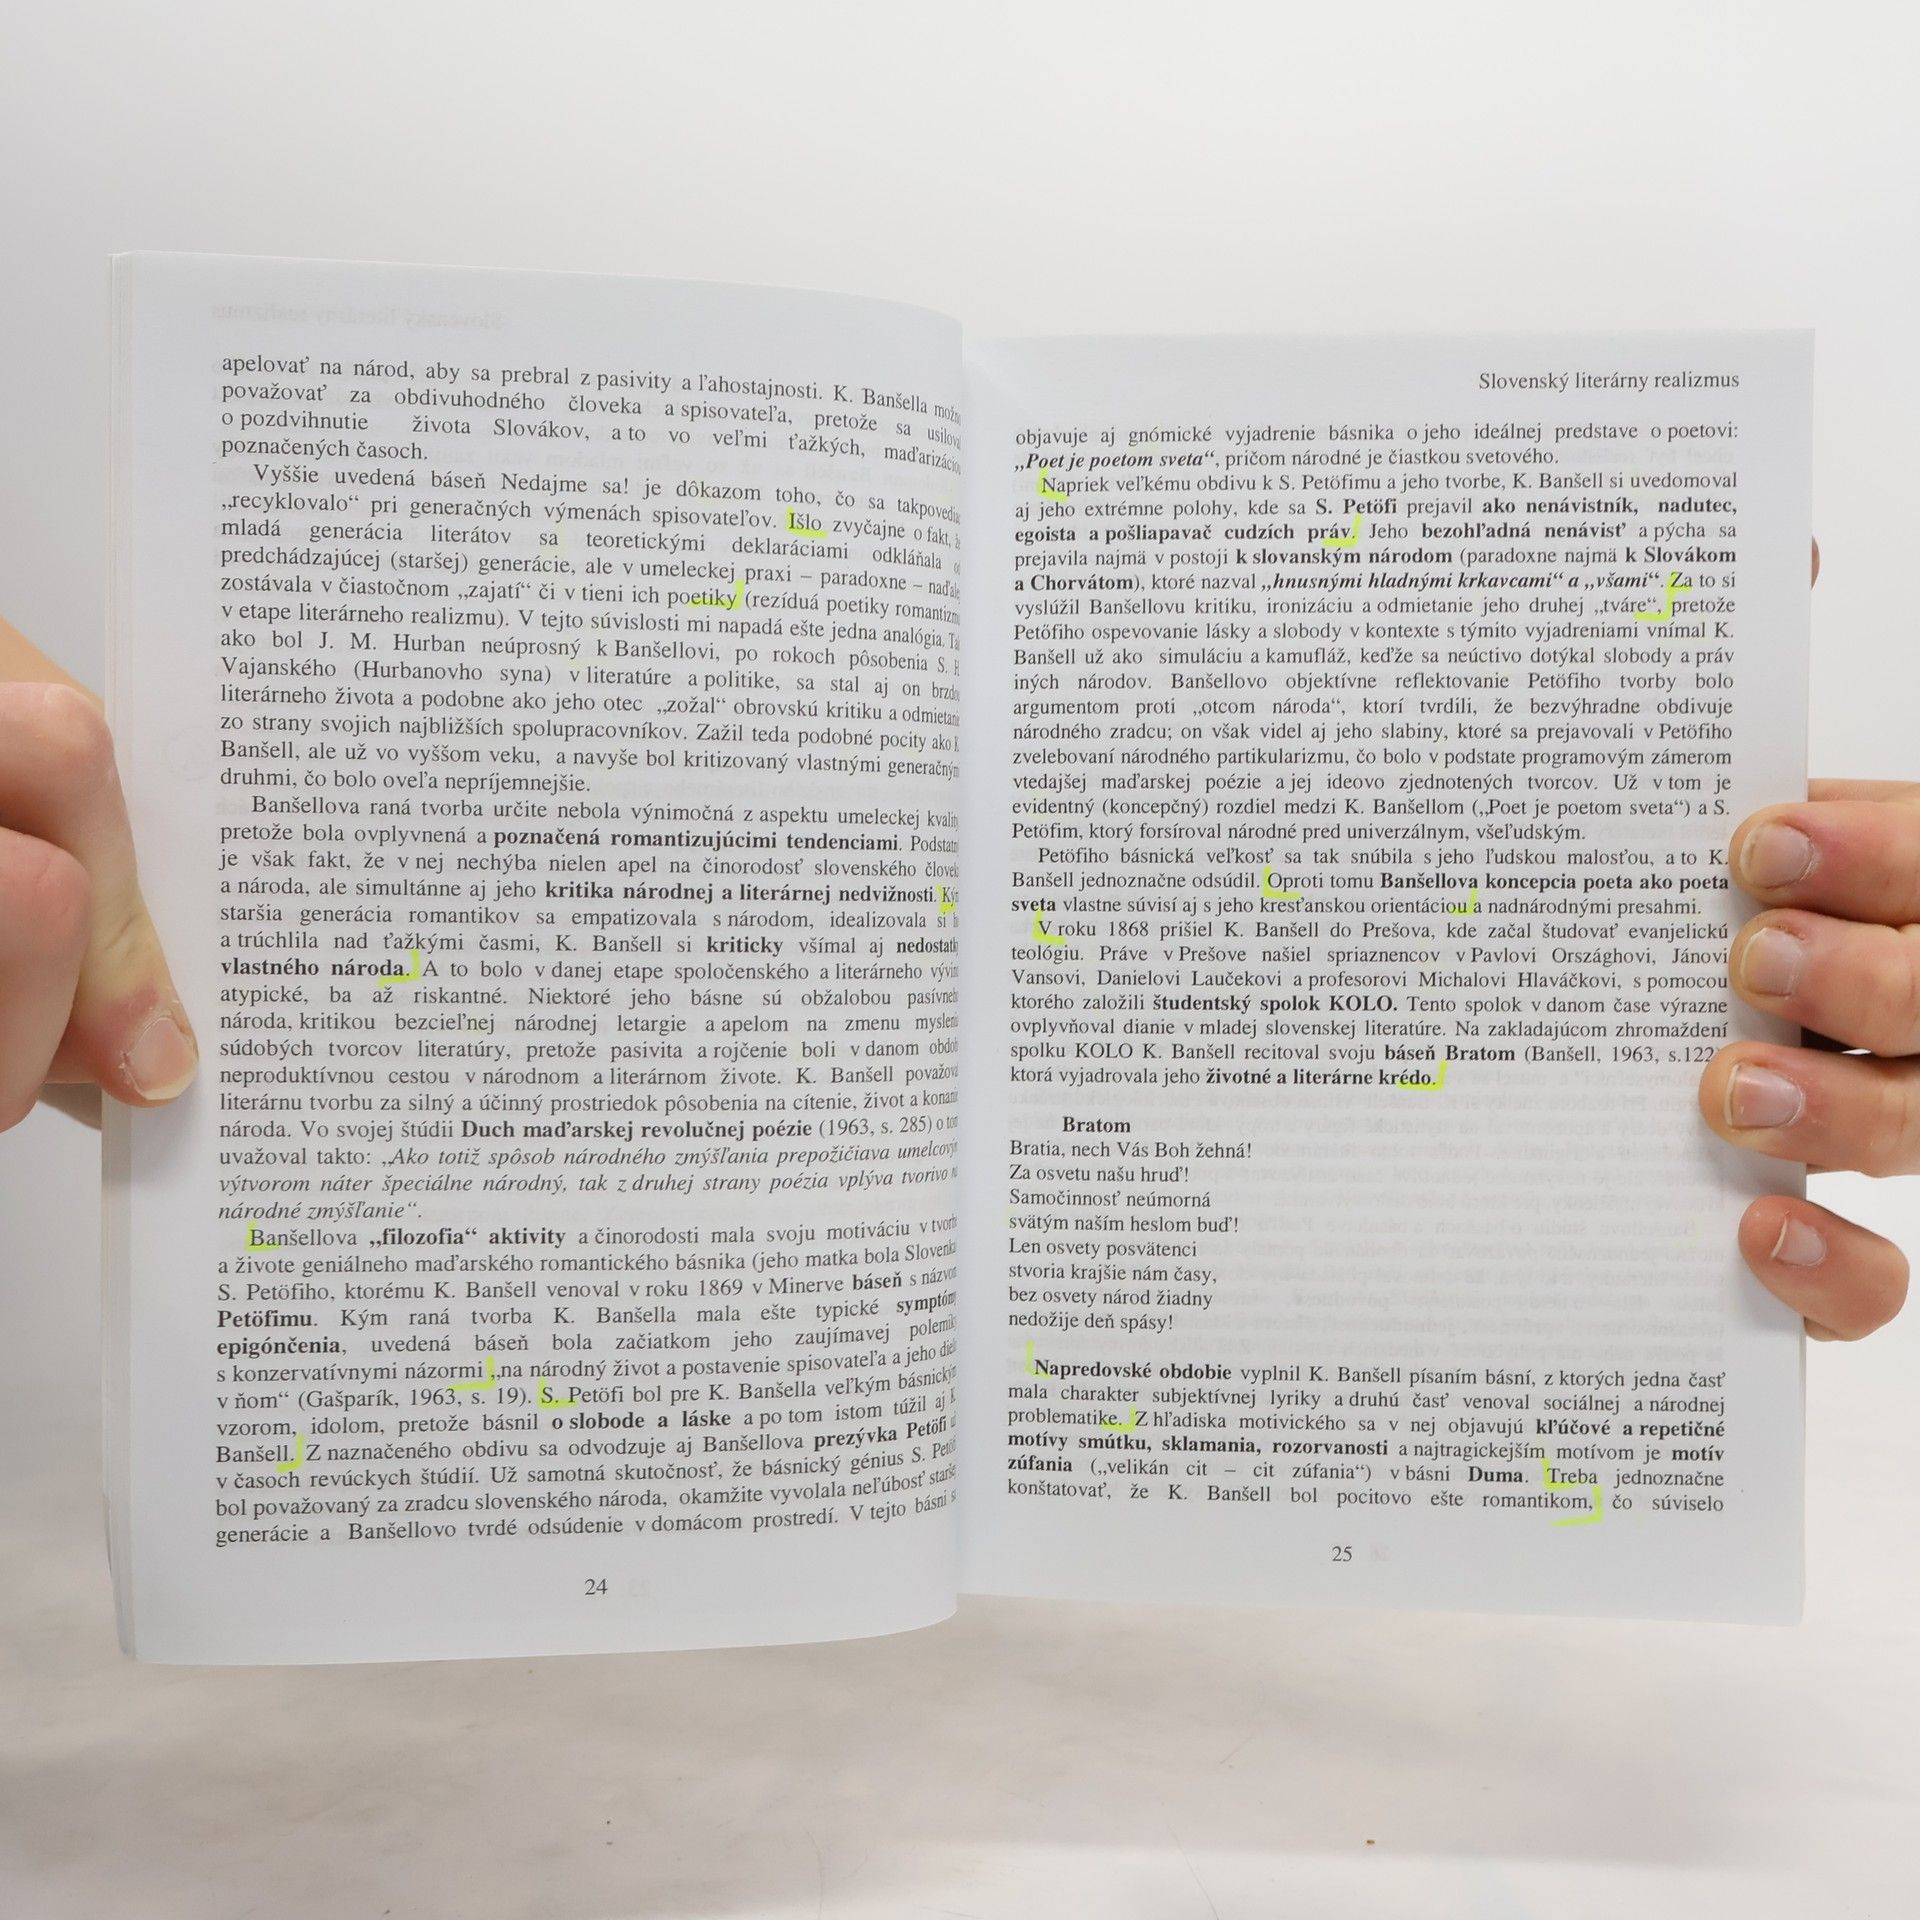 apelovať na národ, aby sa prebral z pasivity a ľahostajnosti. K. Banšella
považovať za obdivuhodného človeka a spisovateľa, pretože sa
o pozdvihnutie života Slovákov, a to vo veľmi ťažkých,
poznačených časoch.
Vyššie uvedená báseň Nedajme sa! je dôkazom toho, čo sa
„recyklovalo“ pri generačných výmenách spisovateľov. Išlo zvyčajne o fakt,
mladá generácia literátov sa teoretickými deklaráciami odkláňala
predchádzajúcej (staršej) generácie, ale v umeleckej praxi – paradoxne –
zostávala v čiastočnom „zajatí“ či v tieni ich poetiky (rezíduá poetiky
v etape literárneho realizmu). V tejto súvislosti mi napadá ešte jedna analógia.
ako bol J. M. Hurban neúprosný k Banšellovi, po rokoch pôsobenia S.
Vajanského (Hurbanovho syna) v literatúre a politike, sa stal aj on
literárneho života a podobne ako jeho otec „zožal“ obrovskú kritiku a
zo strany svojich najbližších spolupracovníkov. Zažil teda podobné pocity ako
Banšell, ale už vo vyššom veku, a navyše bol kritizovaný vlastnými
druhmi, čo bolo oveľa nepríjemnejšie.
Banšellova raná tvorba určite nebola výnimočná z aspektu umeleckej
pretože bola ovplyvnená a poznačená romantizujúcimi tendenciami.
je však fakt, že v nej nechýba nielen apel na činorodosť slovenského
a národa, ale simultánne aj jeho kritika národnej a literárnej nedvižnosti.
staršia generácia romantikov sa empatizovala s národom, idealizovala si
a trúchlila nad ťažkými časmi, K. Banšell si kriticky všímal aj
vlastného národa. A to bolo v danej etape spoločenského a literárneho
atypické, ba až riskantné. Niektoré jeho básne sú obžalobou
národa, kritikou bezcieľnej národnej letargie a apelom na zmenu
súdobých tvorcov literatúry, pretože pasivita a rojčenie boli v danom
neproduktívnou cestou v národnom a literárnom živote. K. Banšell
literárnu tvorbu za silný a účinný prostriedok pôsobenia na cítenie, život a
národa. Vo svojej štúdii Duch maďarskej revolučnej poézie (1963, s. 285) o
uvažoval takto: „Ako totiž spôsob národného zmýšľania prepožičiava
výtvorom náter špeciálne národný, tak z druhej strany poézia vplýva tvorivo
národné zmýšľanie“.
Banšellova „filozofia“ aktivity a činorodosti mala svoju motiváciu v
a živote geniálneho maďarského romantického básnika (jeho matka bola
S. Petöfiho, ktorému K. Banšell venoval v roku 1869 v Minerve báseň s
Petöfimu. Kým raná tvorba K. Banšella mala ešte typické
epigónčenia, uvedená báseň bola začiatkom jeho zaujímavej
s konzervatívnymi názormi „na národný život a postavenie spisovateľa a jeho
v ňom“ (Gašparík, 1963, s. 19). S. Petöfi bol pre K. Banšella veľkým
vzorom, idolom, pretože básnil o slobode a láske a po tom istom túžil aj
Banšell. Z naznačeného obdivu sa odvodzuje aj Banšellova prezývka Petöfi
v časoch revúckych štúdií. Už samotná skutočnosť, že básnický génius S.
bol považovaný za zradcu slovenského národa, okamžite vyvolala neľúbosť
generácie a Banšellovo tvrdé odsúdenie v domácom prostredí. V tejto básni
24
Slovenský literárny realizmus
objavuje aj gnómické vyjadrenie básnika o jeho ideálnej predstave o poetovi:
„Poet je poetom sveta“, pričom národné je čiastkou svetového.
Napriek veľkému obdivu k S. Petöfimu a jeho tvorbe, K. Banšell si uvedomoval
aj jeho extrémne polohy, kde sa S. Petöfi prejavil ako nenávistník, nadutec,
egoista a pošliapavač cudzích práv. Jeho bezohľadná nenávisť a pýcha sa
prejavila najmä v postoji k slovanským národom (paradoxne najmä k Slovákom
a Chorvátom), ktoré nazval „hnusnými hladnými krkavcami“ a „všami“. Za to si
vyslúžil Banšellovu kritiku, ironizáciu a odmietanie jeho druhej „tváre“, pretože
Petőfiho ospevovanie lásky a slobody v kontexte s týmito vyjadreniami vnímal K.
Banšell už ako simuláciu a kamufláž, keďže sa neúctivo dotýkal slobody a práv
iných národov. Banšellovo objektívne reflektovanie Petöfiho tvorby bolo
argumentom proti „otcom národa“, ktorí tvrdili, že bezvýhradne obdivuje
národného zradcu; on však videl aj jeho slabiny, ktoré sa prejavovali v Petöfiho
zvelebovaní národného partikularizmu, čo bolo v podstate programovým zámerom
vtedajšej maďarskej poézie a jej ideovo zjednotených tvorcov. Už v tom je
evidentný (koncepčný) rozdiel medzi K. Banšellom („Poet je poetom sveta“) a S.
Petöfim, ktorý forsíroval národné pred univerzálnym, všeľudským.
Petöfiho básnická veľkosť sa tak snúbila s jeho ľudskou malosťou, a to K.
Banšell jednoznačne odsúdil. Oproti tomu Banšellova koncepcia poeta ako poeta
sveta vlastne súvisí aj s jeho kresťanskou orientáciou a nadnárodnými presahmi.
V roku 1868 prišiel K. Banšell do Prešova, kde začal študovať evanjelickú
teológiu. Práve v Prešove našiel spriaznencov v Pavlovi Országhovi, Jánovi
Vansovi, Danielovi Laučekovi a profesorovi Michalovi Hlaváčkovi, s pomocou
ktorého založili študentský spolok KOLO. Tento spolok v danom čase výrazne
ovplyvňoval dianie v mladej slovenskej literatúre. Na zakladajúcom zhromaždení
spolku KOLO K. Banšell recitoval svoju báseň Bratom (Banšell, 1963, s.122),
ktorá vyjadrovala jeho životné a literárne krédo.
Bratom
Bratia, nech Vás Boh žehná!
Za osvetu našu hruď!
Samočinnosť neúmorná
svätým naším heslom buď!
Len osvety posvätenci
stvoria krajšie nám časy,
bez osvety národ žiadny
nedožije deň spásy!
Napredovské obdobie vyplnil K. Banšell písaním básní, z ktorých jedna časť
mala charakter subjektívnej lyriky a druhú časť venoval sociálnej a národnej
problematike. Z hľadiska motivického sa v nej objavujú kľúčové a repetičné
motívy smútku, sklamania, rozorvanosti a najtragickejším motívom je motív
zúfania („velikán cit – cit zúfania“) v básni Duma. Treba jednoznačne
konštatovať, že K. Banšell bol pocitovo ešte romantikom, čo súviselo
25